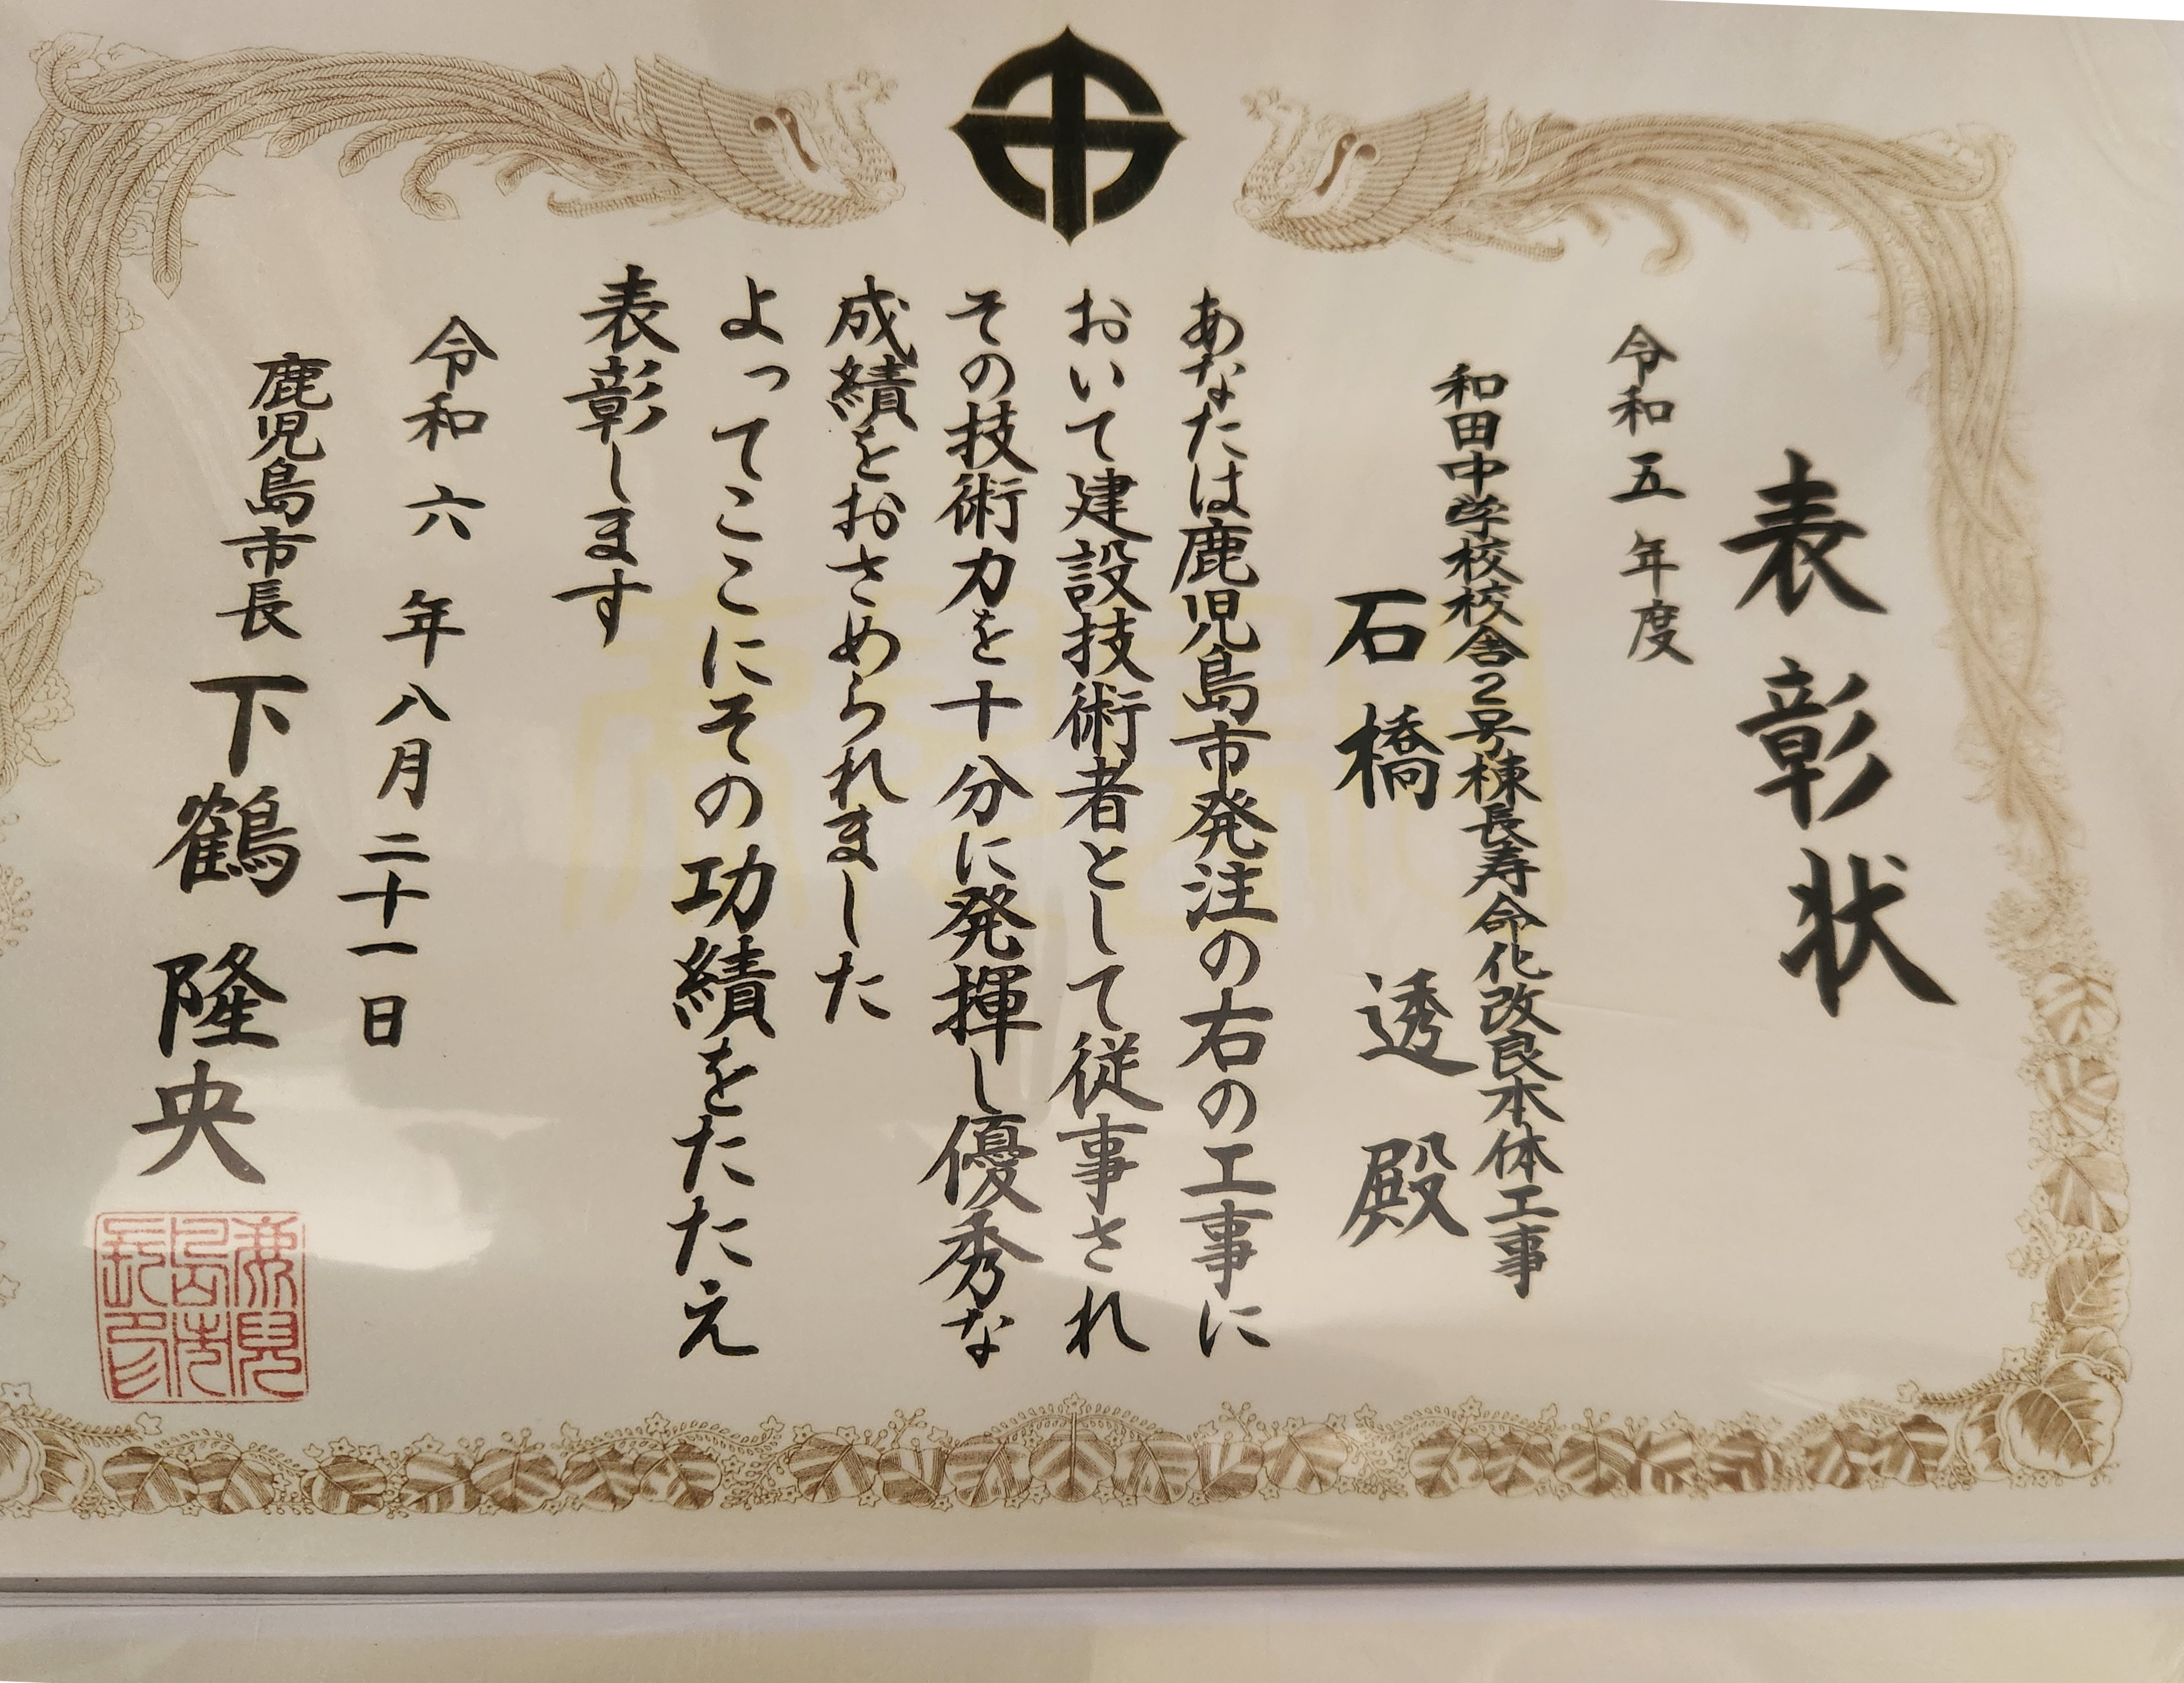 表彰状
令和五年度
和田中学校校舎2号棟長寿命化改良本体工事
石橋 透 殿
あなたは鹿児島市発注の右の工事に
おいて建設技術者として従事され
その技術力を十分に発揮し優秀な
成績をおさめられました
よってここにその功績をたたえ
表彰します
令和六年八月二十一日
鹿児島市長 下鶴隆央
鹿兒島市長印